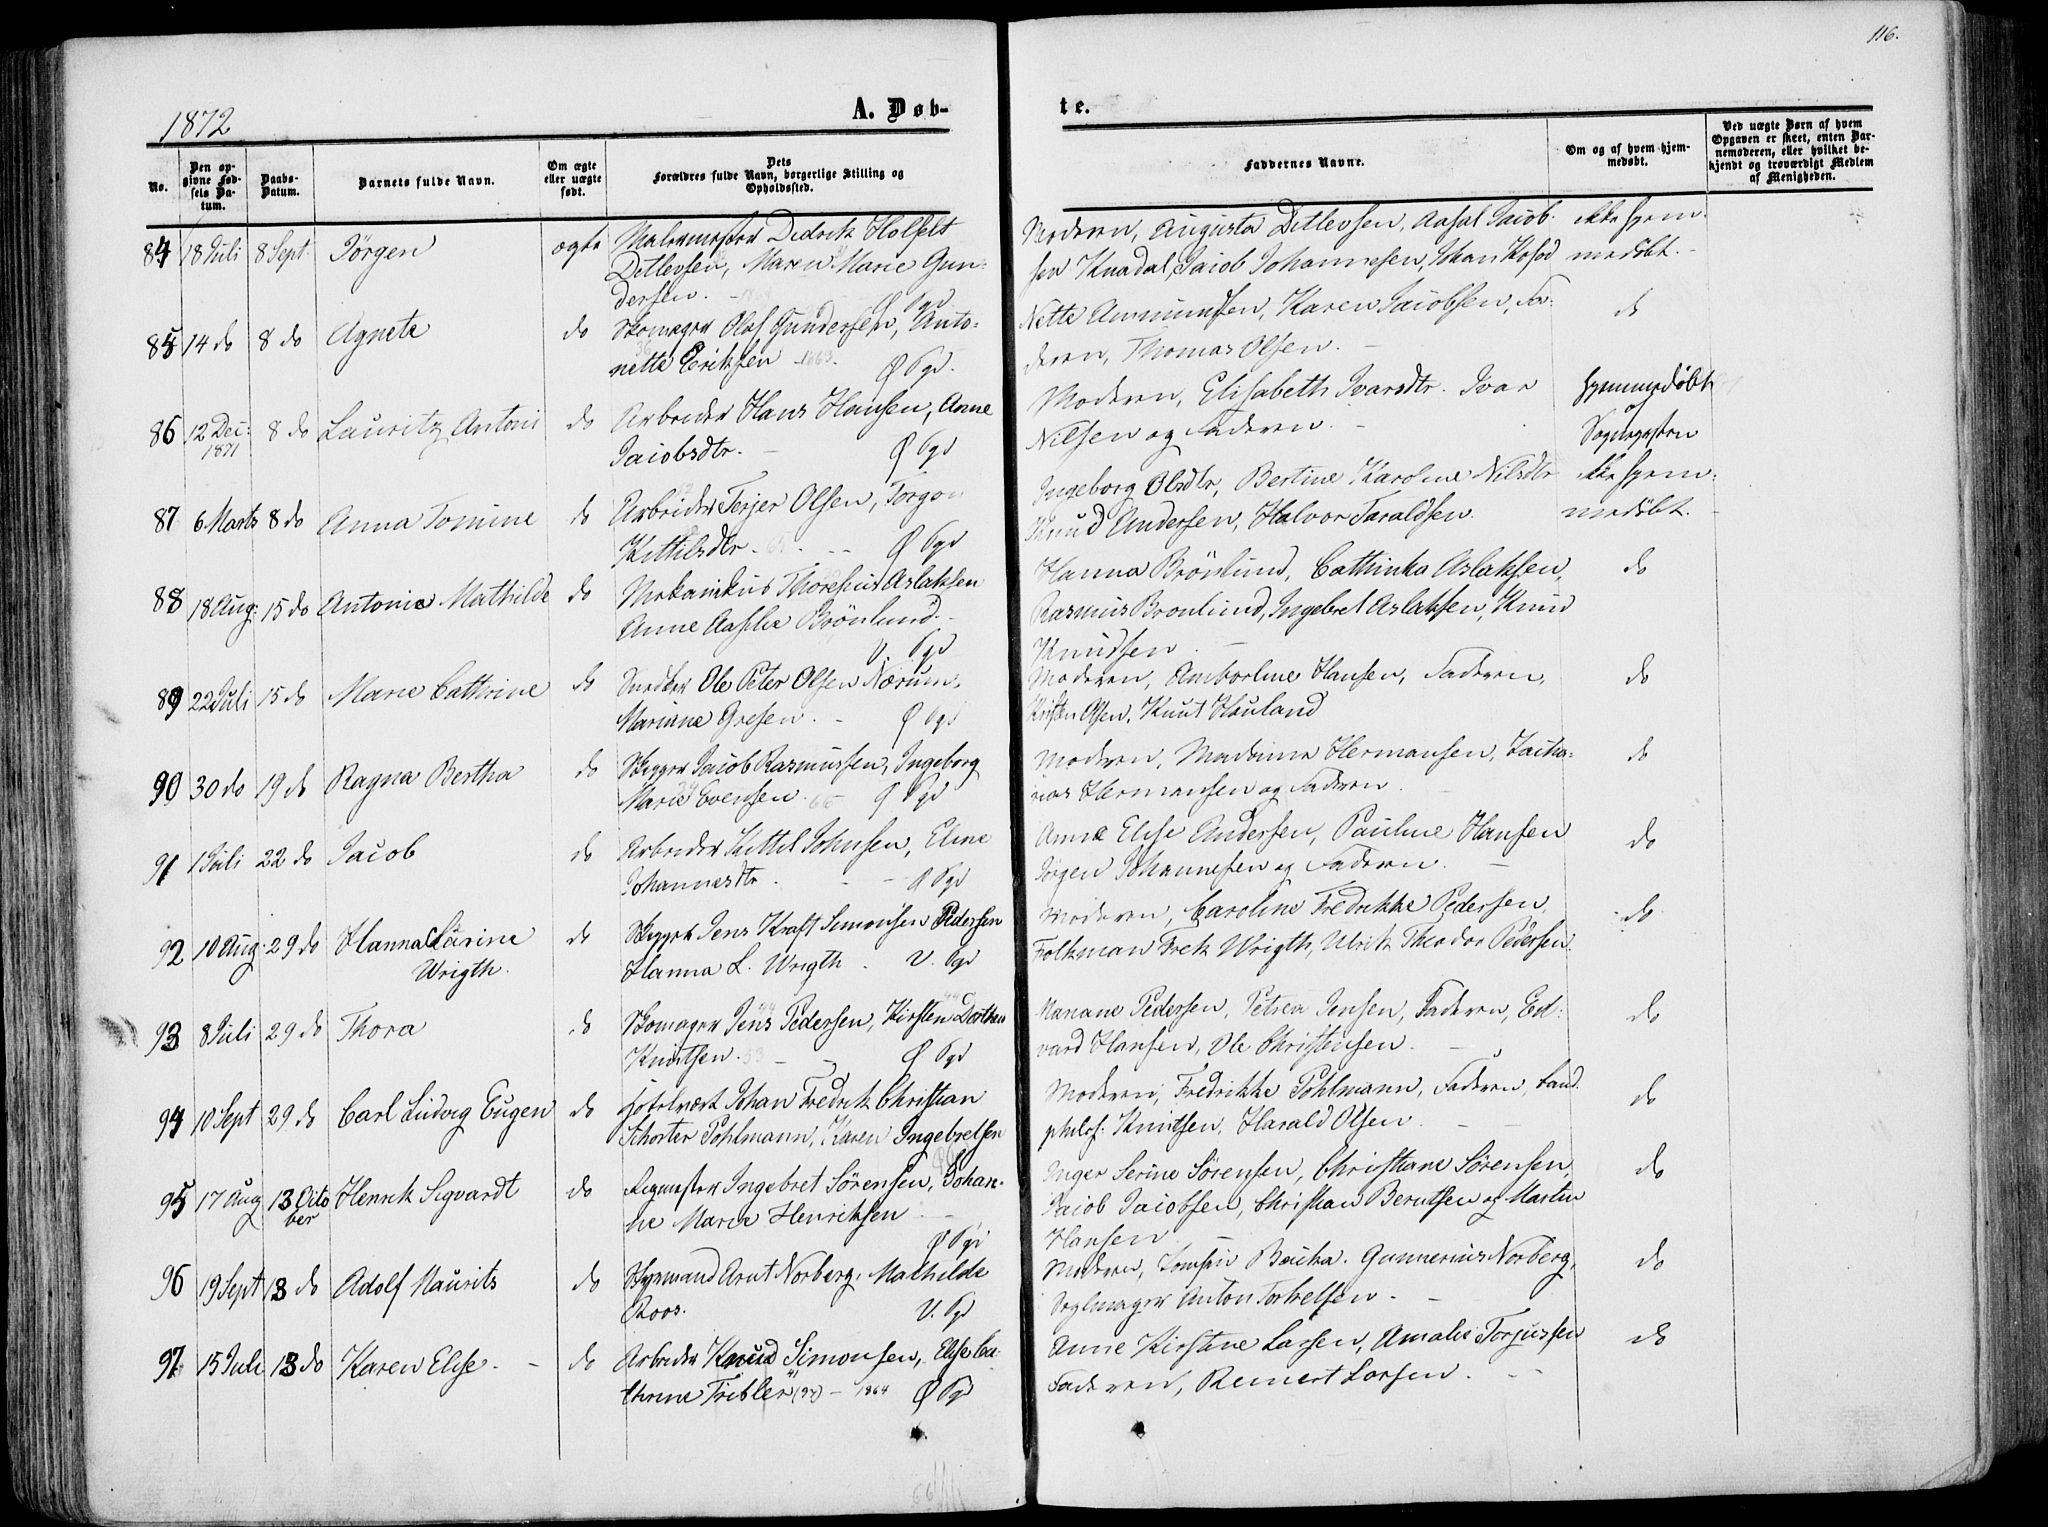 116.
1872
A. Døb-
te.
No.
Den op-
givne Fød-
sels Da-
tum.
Daabs-
Datum.
Barnets fulde Navn.
Om ægte
eller uægte
født.
Dets
Forældres fulde Navn, borgerlige Stilling og
Opholdssted.
Faddernes Navne.
Om og af hvem hjem-
medøbt.
Ved uægte Børn af hvem
Opgaven er skeet, enten Bar-
nemoderen, eller hvilket be-
kjendt og troværdigt Medlem
af Menigheden.
84 18 Juli 8 Sept. Jörgen ægte Malermester Didrik Holfelt
Ditlevsen, Maren Marie Gun-
dersen. Ø Pgd
Moderen, Augusta Ditlevsen, Aasal Jacob-
sen Knadal, Jacob Johannesen, Johan
ikke hjem-
medöbt.
85 14 do 8 do Agnete do Skomager Olaf Gundersen, Anto-
nette Eriksen 1863. Ø Pgd.
Nette Ammundsen, Karen Jacobsen, Fa-
deren, Thomas Olsen.
do
86 12 Dec: 1871 8 do Lauritz Antoni do Arbeider Hans Hansen, Anne
Jacobsdtr. Ø Pgd
Moderen, Elisabeth Ivarsdtr. Ivar
Nilsen og Faderen.
hjemmedöbt
af
Sognepresten
87 6 Marts 8 do Anna Tomine do Arbeider Terjer Olsen, Torgon
Kittilsdtr. 65. Ø Pgd
Ingeborg Olsdtr, Bertine Karoline Nilsdtr
Knud Andersen, Halvor Taraldsen.
ikke hjem-
medöbt.
88 18 Aug: 15 do Antonie Mathilde do Mekanikus Thorehus Aslaksen
Anne Aaslie Brönlund.
V. Pgd
Hanna Brönlund, Cathinka Aslaksen,
Rasmus Bronlund, Ingebret Aslaksen, Knud
Knudsen
do
89 22 Juli 15 do Marie Cathrine do Snedker Ole Peter Olsen Nærum,
Mariane Gresen. Ø Pgd
Moderen, Amborline Hansen, Faderen,
Kristen Olsen, Knut Hauland
do
90 30 do 19 do Ragna Bertha do Skipper Jacob Rasmussen, Ingeborg
Marie Evensen. 66 Ø Pgd
Moderen, Madamme Hermansen, Zacha-
rias Hermansen og Faderen.
do
91 1 Juli 22 do Jacob do Arbeider Kittil Johnsen, Eline
Johannesdtr. Ø Pgd
Anne Elise Andersen, Pauline Hansen
Jörgen Johannesen og Faderen.
do
92 10 Aug. 29 do Hanna Larine
Wrigth.
do Skipper Jens Kraft Simonsen Pedersen
Hanna L. Wrigth. V. Pgd
Moderen, Caroline Fredrikke Pedersen,
Folkman Frek Wrigth, Ulrik Theodor Pedersen.
do
93 8 Juli 29 do Thora do Skomager Jens Pedersen, Kirsten Dorthea
Knutsen. 53 Ø Pgd
Mariane Pedersen, Petrea Jensen, Faderen, Ed-
vard Hansen, Ole Christensen.
do
94 10 Sept 29 do Carl Ludvig Eugen do Hotelvert Johan Fredrik Christian
Schorter Pohlmann, Karen Ingebretsen
Moderen, Fredrikke Pohlmann, Faderen, Cand.
philos: Knutsen, Harald Olsen.
do
95 17 Aug 13 Octo
ber
Henrik Sigvardt do Ingebret Sörensen, Johan-
ne Marie Henriksen
Ø Pgd
Inger Serine Sörensen, Christiane Sörensen,
Jacob Jacobsen, Christian Berntsen og Martin
Hansen
do
96 19 Sept 13 do Adolf Mauritz do Styrmand Arnt Norberg, Mathilde
Roos. V. Pgd
Moderen, Bacha. Gunnerius Norberg,
Seglmager Anton Torkelsen.
do
97 15 Juli 13 do Karen Elise. do Arbeider Knud Simonsen, Elise Ca-
thrine Tribler (37) 1864 Ø Pgd
Anne Kirstine Larsen, Amalie Torjussen
Faderen, Reinert Larsen.
do